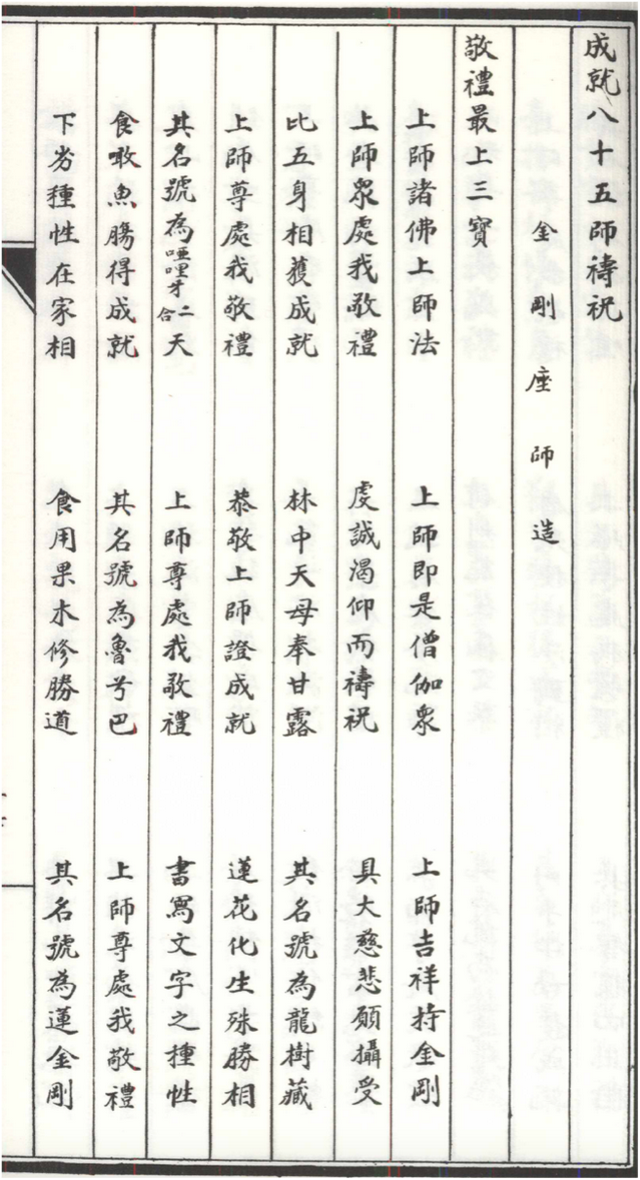 成就八十五師禱祝
金剛座師造
敬禮最上三寶
上師諸佛上師法　上師即是僧伽衆　上師吉祥持金剛
上師衆處我敬禮　虔誠渴仰而禱祝　具大慈悲願攝受
比五身相獲成就　林中天母奉甘露　其名號為龍樹藏
上師尊處我敬禮　恭敬上師證成就　蓮花化生殊勝相
其名號為啞哩牙二合天　上師尊處我敬禮　書寫文字之種性
食噉魚膓得成就　其名號為魯兮巴　上師尊處我敬禮
下劣種性在家相　食用果木修勝道　其名號為蓮金剛